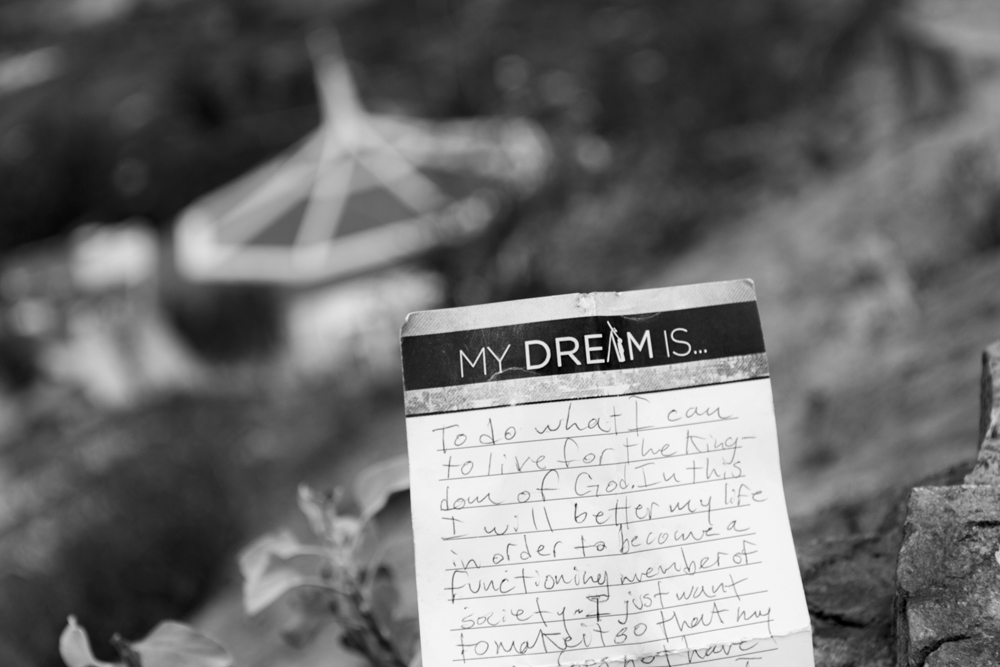 MY DREAM IS...
To do what I can
to live for the King-
dom of God. In this
I will better my life
in order to become a
functioning member of
society. I just want
to make it so that my
does not have